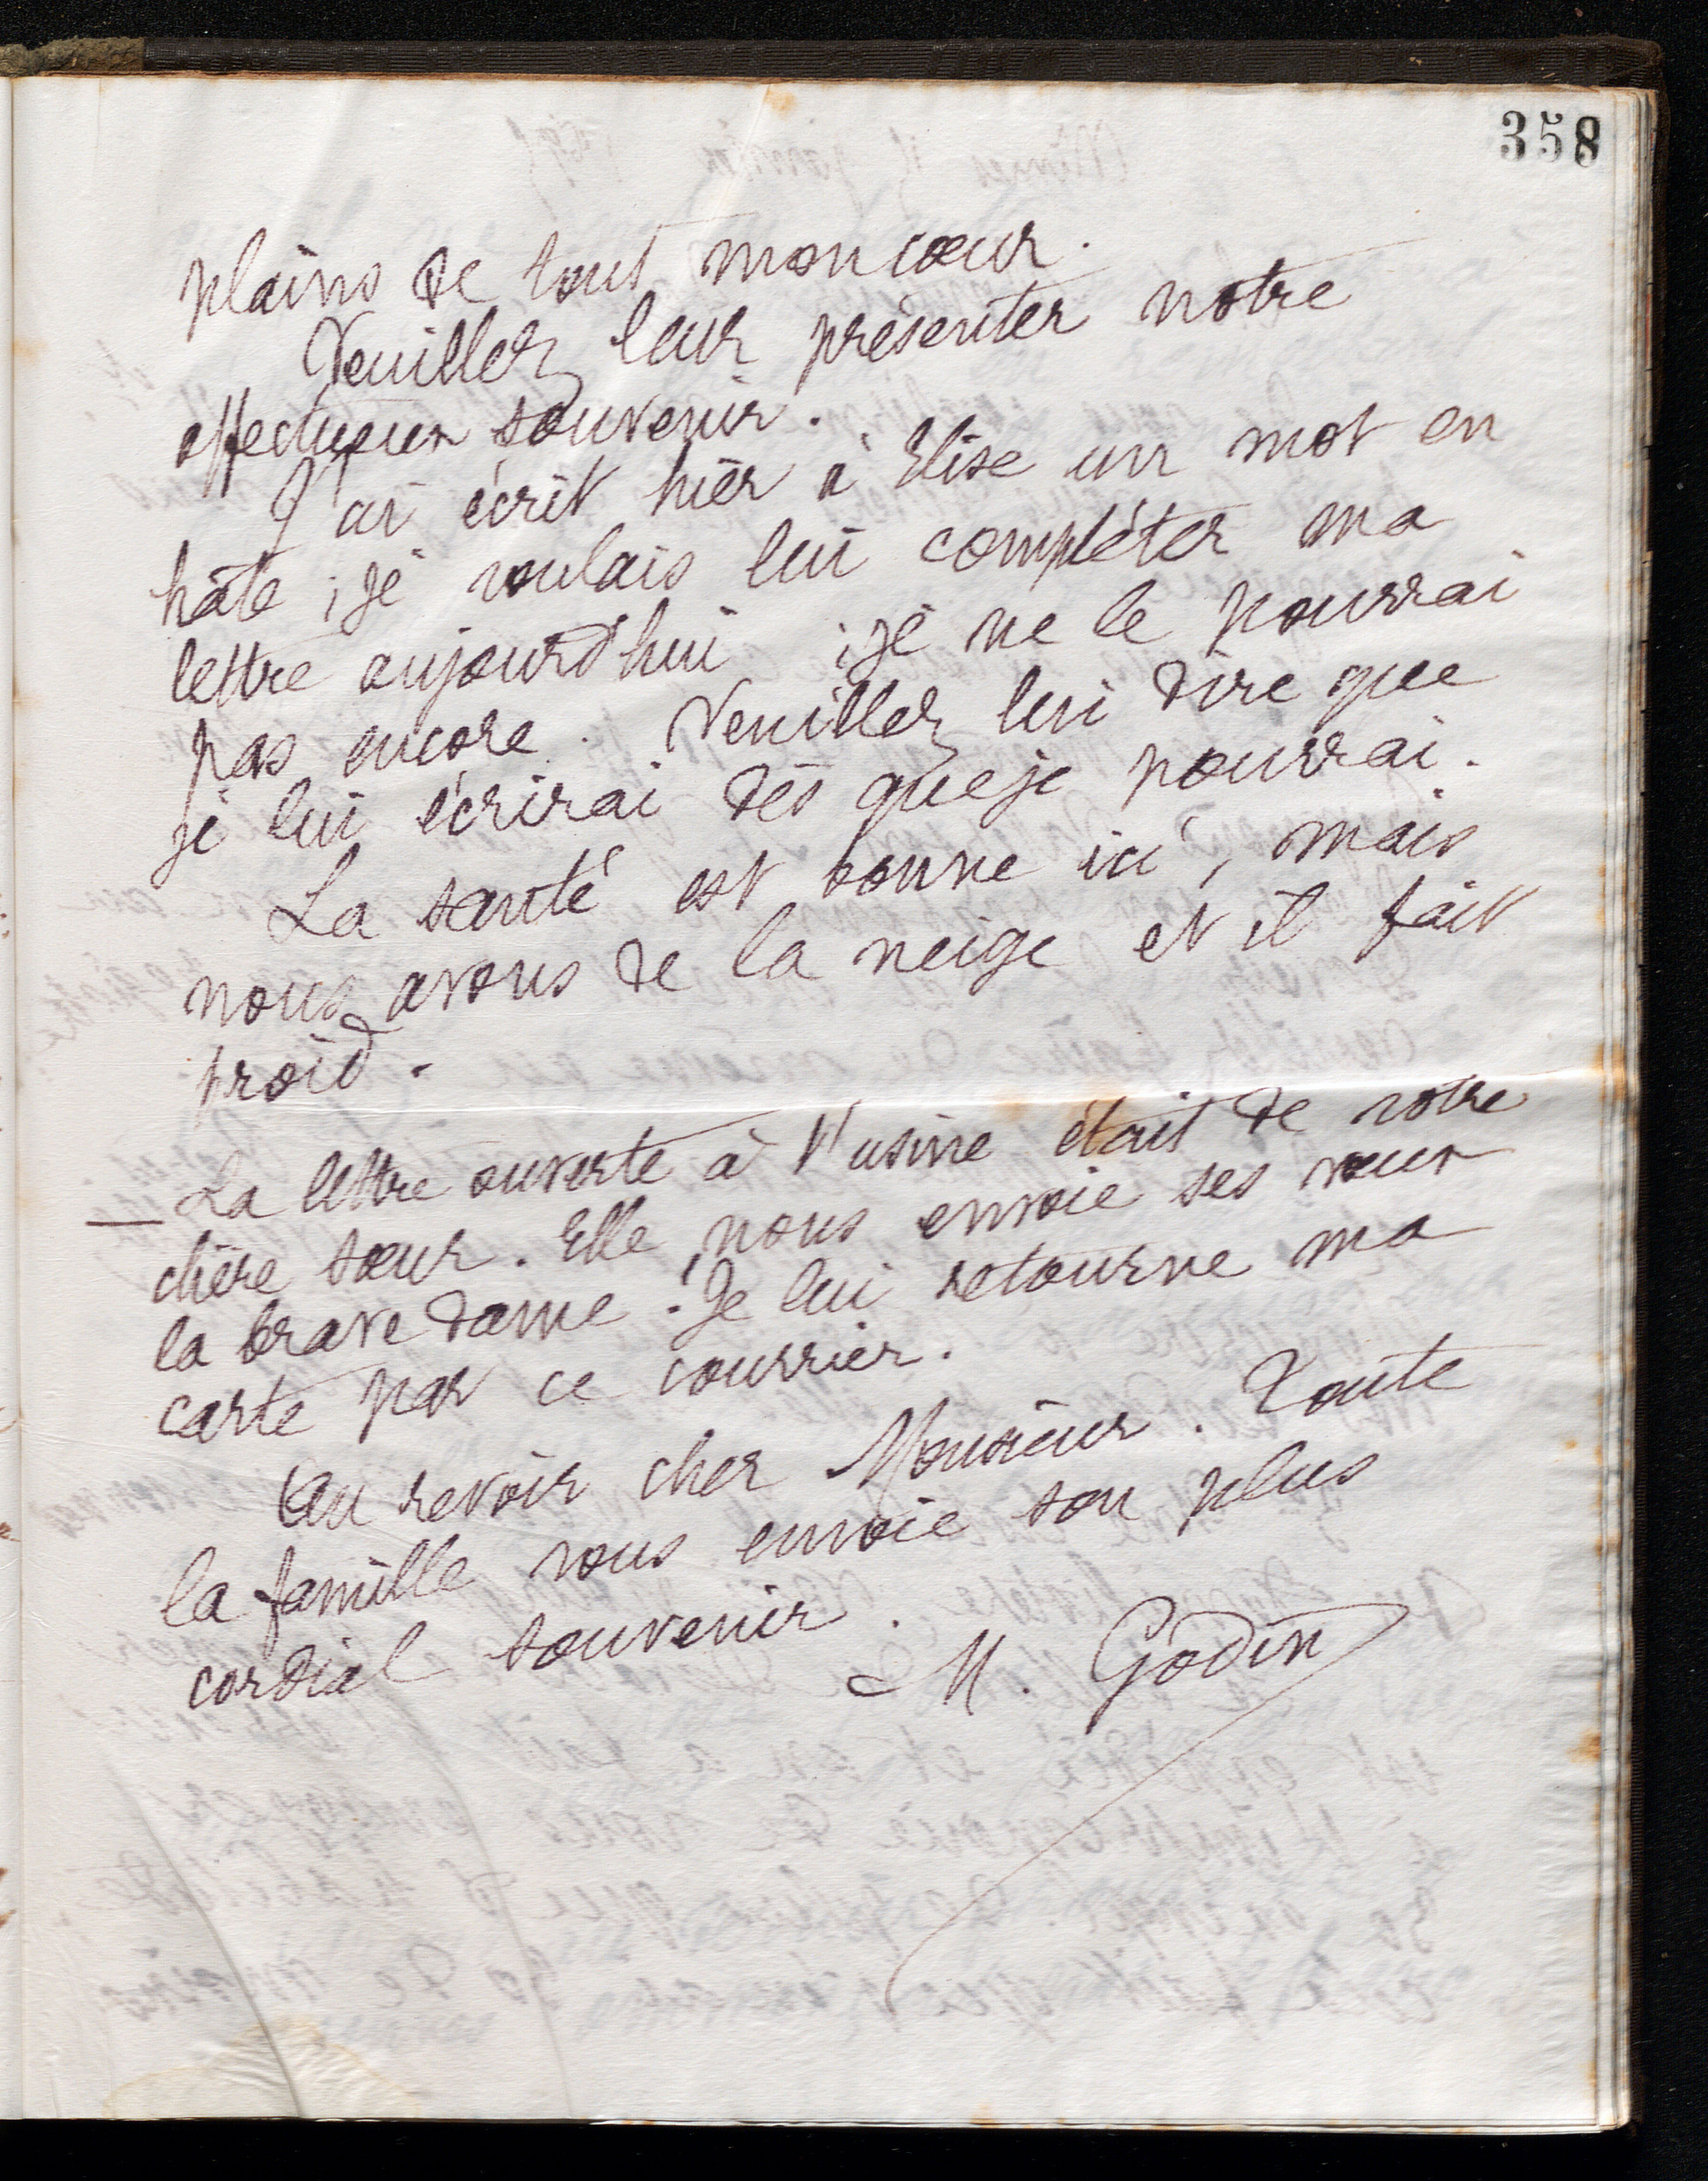 358
plains de tout mon cœur.
Veuillez leur présenter notre
affectueux souvenir.
J'ai écrit hier à Elise un mot en
hâte ; je voulais lui compléter ma
lettre aujourd'hui ; je ne le pourrai
pas encore. Veuillez lui dire que
je lui écrirai dès que je pourrai.
La santé est bonne ici, mais
nous avons de la neige et il fait
froid.
— La lettre ouverte à l'usine était de votre
chère sœur. Elle nous envoie ses vœux
la brave dame ! Je lui retourne ma
carte par ce courrier.
Au revoir cher Monsieur. Toute
la famille vous envoie son plus
cordial souvenir.
M. Godin